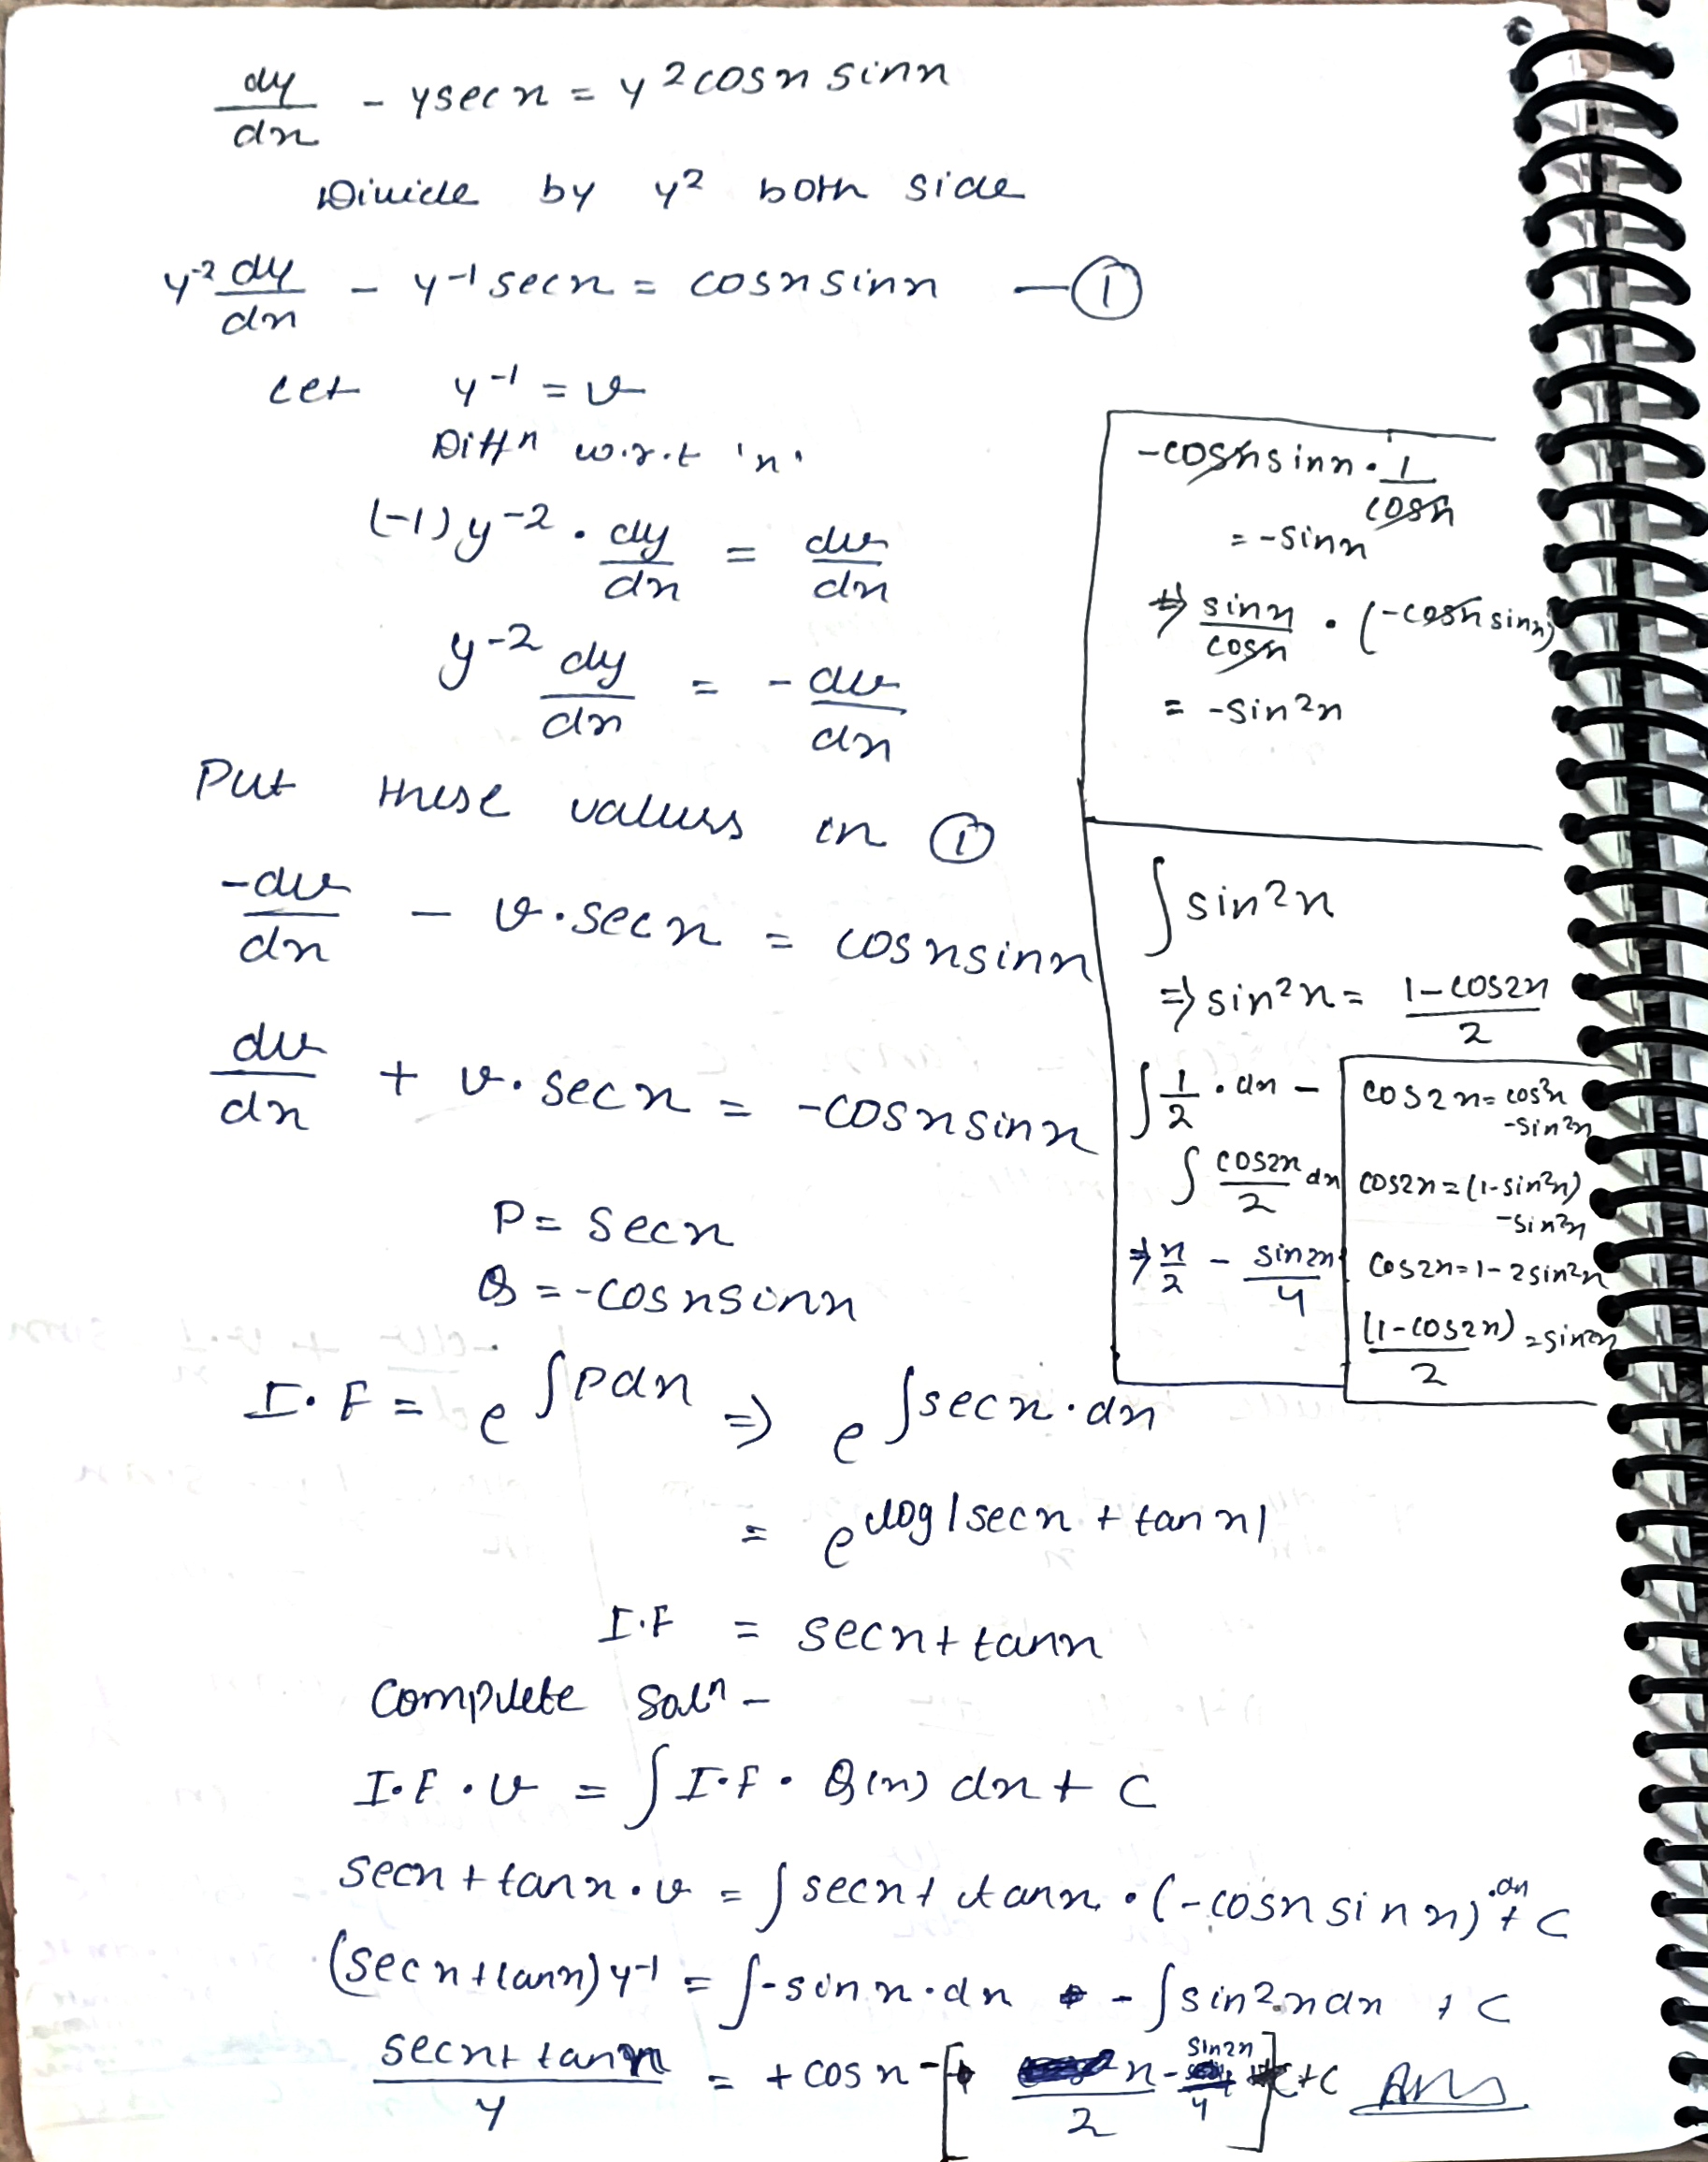 dy/dx - y sec x = y² cos x sin x
Divide by y² both side
y⁻² dy/dx - y⁻¹ sec x = cos x sin x — ①
Let y⁻¹ = v
Diffⁿ w.r.t 'x'
(-1) y⁻² · dy/dx = dv/dx
y⁻² dy/dx = -dv/dx
Put these values in ①
-dv/dx - v · sec x = cos x sin x
dv/dx + v · sec x = -cos x sin x
P = sec x
Q = -cos x sin x
I.F = e^∫P dx ⇒ e^∫sec x · dx
= e^log|sec x + tan x|
I.F = sec x + tan x
Complete solⁿ -
I.F · v = ∫ I.F · Q(x) dx + C
sec x + tan x · v = ∫ sec x + tan x · (-cos x sin x) · dx + C
(sec x + tan x) y⁻¹ = ∫ -sin x · dx - ∫ sin² x dx + C
(sec x + tan x)/y = + cos x - [x/2 - sin 2x/4] + C Ans
-cos x sin x · 1/cos x
= -sin x
⇒ sin x/cos x · (-cos x sin x)
= -sin² x
∫ sin² x
⇒ sin² x = (1 - cos 2x)/2
∫ 1/2 · dx -
∫ cos 2x/2 dx
⇒ x/2 - sin 2x/4
cos 2x = cos² x
- sin² x
cos 2x = (1 - sin² x)
- sin² x
cos 2x = 1 - 2 sin² x
(1 - cos 2x)/2 = sin² x